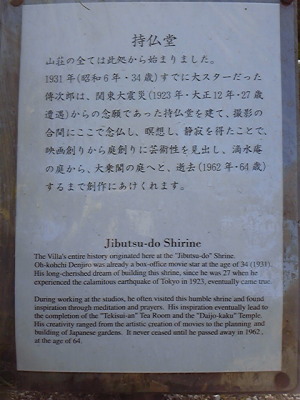 持仏堂
山荘の全ては此処から始まりました。
1931年(昭和6年・34歳)すでに大スターだった
傳次郎は、関東大震災(1923年・大正12年・27歳
遭遇)からの念願であった持仏堂を建て、撮影の
合間にここで念仏し、瞑想し、静寂を得たことで、
映画創りから庭創りに芸術性を見出し、滴水庵
の庭から、大乗閣の庭へと、逝去(1962年・64歳)
するまで創作にあけくれます。
Jibutsu-do Shirine
The Villa's entire history originated here at the "Jibutsu-do" Shrine.
Oh-kohchi Denjiro was already a box-office movie star at the age of 34 (1931).
His long-cherished dream of building this shrine, since he was 27 when he
experienced the calamitous earthquake of Tokyo in 1923, eventually came true.
During working at the studios, he often visited this humble shrine and found
inspiration through meditation and prayers. His inspiration eventually lead to
the completion of the "Tekisui-an" Tea Room and the "Daijo-kaku" Temple.
His creativity ranged from the artistic creation of movies to the planning and
building of Japanese gardens. It never ceased until he passed away in 1962,
at the age of 64.